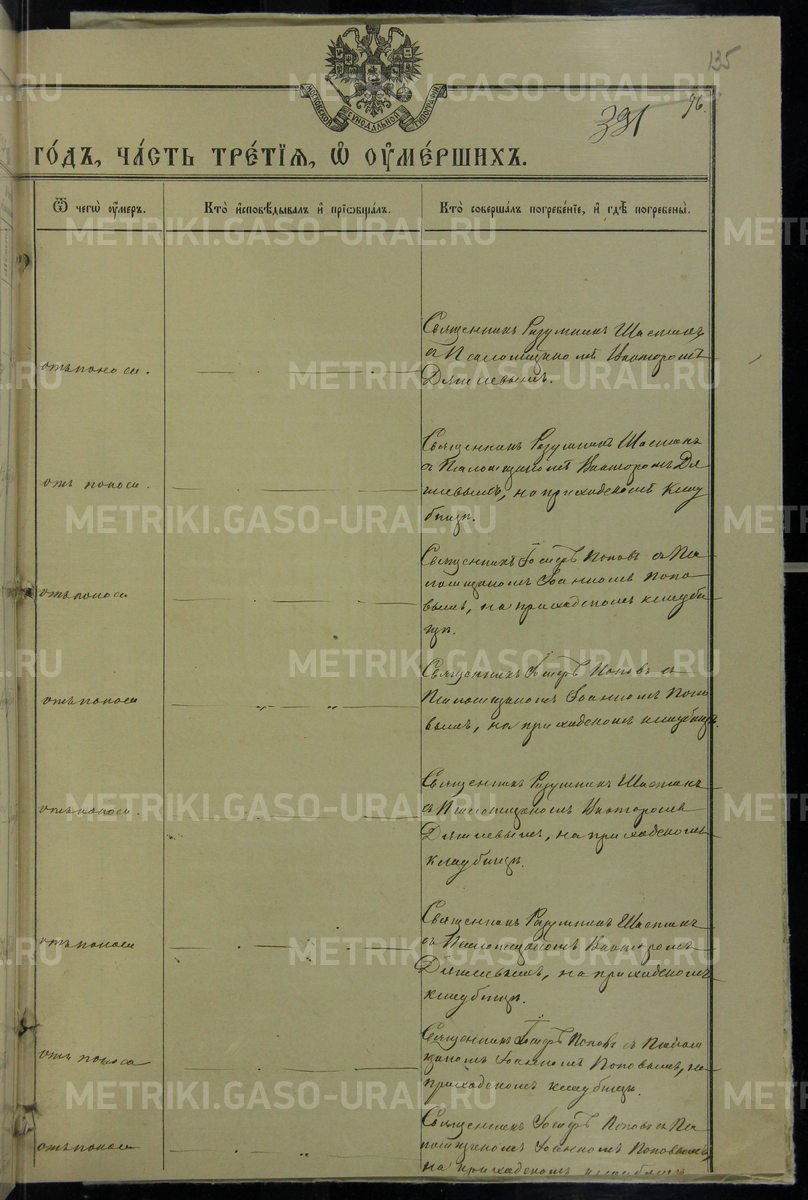 135
96
331
МОСКОВСКОЙ СѴНОДАЛЬНОЙ ТИПОГРАФІИ
ГО́ДЪ, ЧА́СТЬ ТРЕ́ТІѦ, Ѡ҆ ОУ҆МЕ́РШИХЪ.
Ѿ чегѡ̀ оу҆́меръ.
Кто̀ и҆сповѣ́дывалъ и҆ прїѡбща́лъ.
Кто̀ соверша́лъ погребе́нїе, и҆ гдѣ̀ погребены̀.
отъ поноса.
Священникъ Разумникъ Шастинъ
съ Псаломщикомъ Викторомъ
Дягилевымъ.
отъ поноса.
Священникъ Разумникъ Шастинъ
съ Псаломщикомъ Викторомъ Дя
гилевымъ, на приходскомъ клад
бищѣ.
отъ поноса
Священникъ Іосифъ Поповъ съ Пса
ломщикомъ Іоанномъ Попо
вымъ, на приходскомъ кладби
щѣ.
отъ поноса
Священникъ Іосифъ Поповъ съ
Псаломщикомъ Іоанномъ Попо
вымъ, на приходскомъ кладбищѣ.
отъ поноса.
Священникъ Разумникъ Шастинъ
съ Псаломщикомъ Викторомъ
Дягилевымъ, на приходскомъ
кладбищѣ.
отъ поноса
Священникъ Разумникъ Шастинъ
съ Псаломщикомъ Викторомъ
Дягилевымъ, на приходскомъ
кладбищѣ.
отъ поноса
Священникъ Іосифъ Поповъ съ Псалом
щикомъ Іоанномъ Поповымъ, на
приходскомъ кладбищѣ.
отъ поноса
Священникъ Іосифъ Поповъ съ Пса
ломщикомъ Іоанномъ Поповымъ,
на приходскомъ кладбищѣ
METRIKI.GASO-URAL.RU